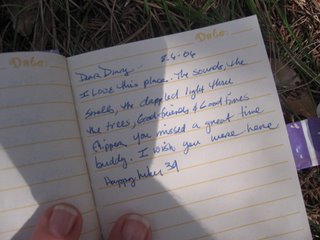 Date:
Date:
Dear Diary 2.4.06
I Love this place. The sounds, the
smells, the dappled light threw
the trees, Good friends & Good times
you missed a great time
buddy. I wish you were here
Happy hiker 39